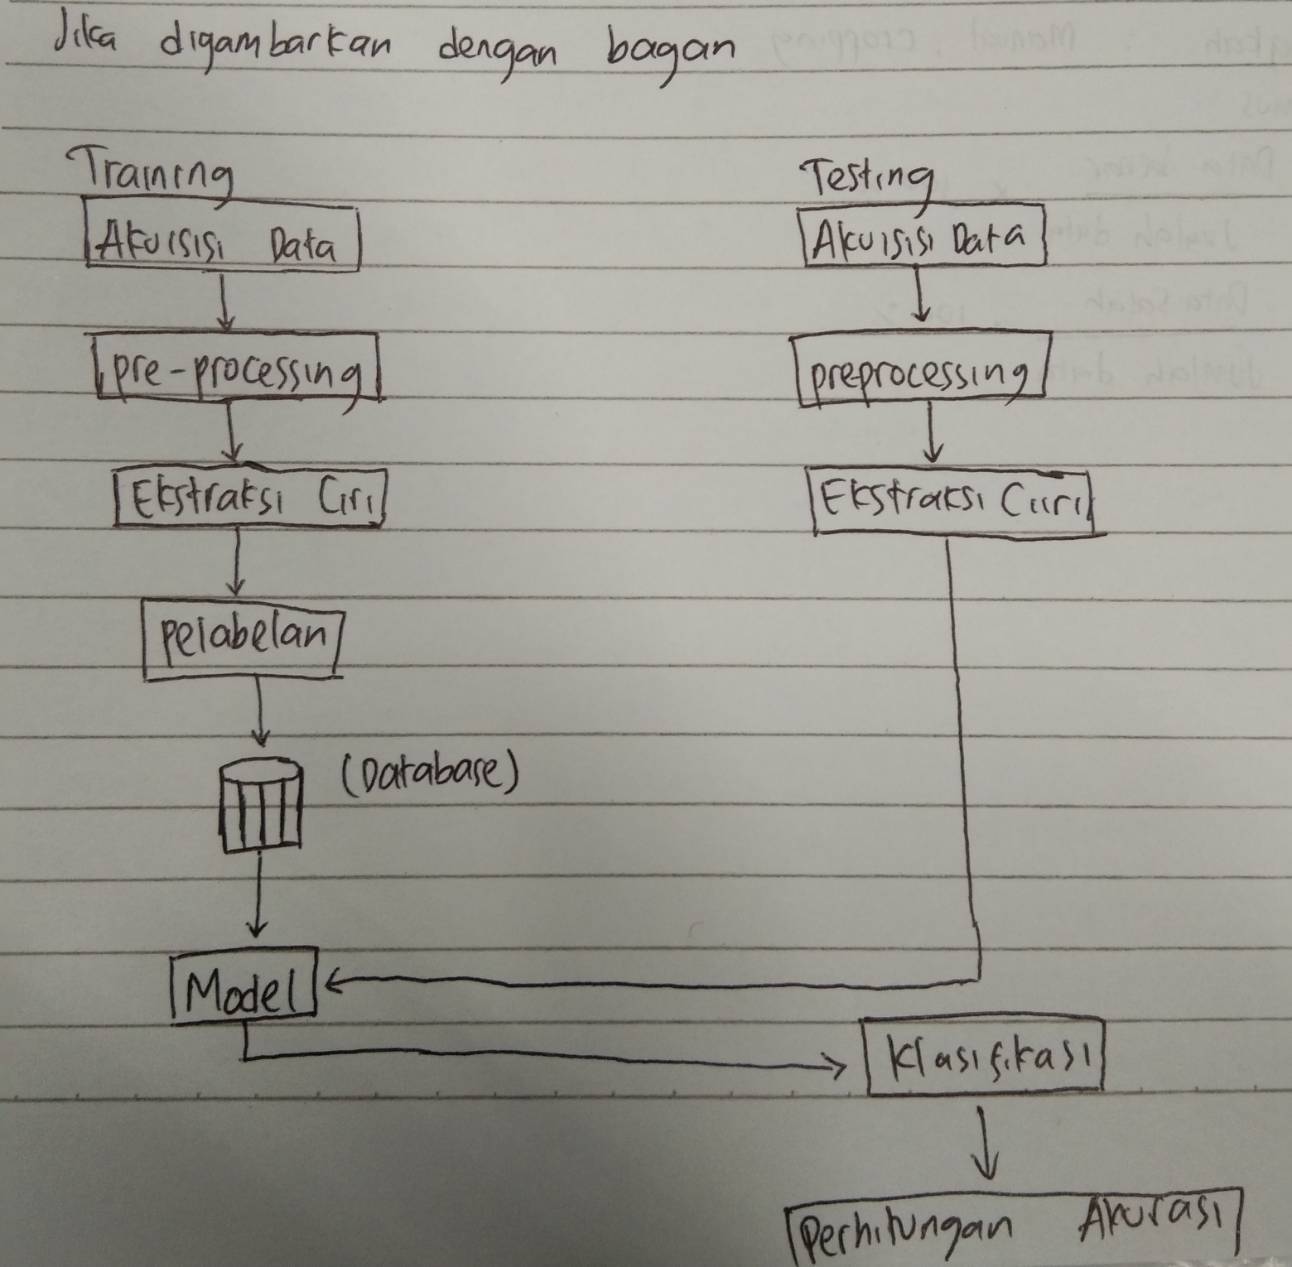 Jika digambarkan dengan bagan
Training
Akuisisi Data
pre-processing
Ekstraksi Ciri
pelabelan
(Database)
Model
Testing
Akuisisi Data
preprocessing
Ekstraksi Ciiri
Klasifikasi
Perhitungan Akurasi